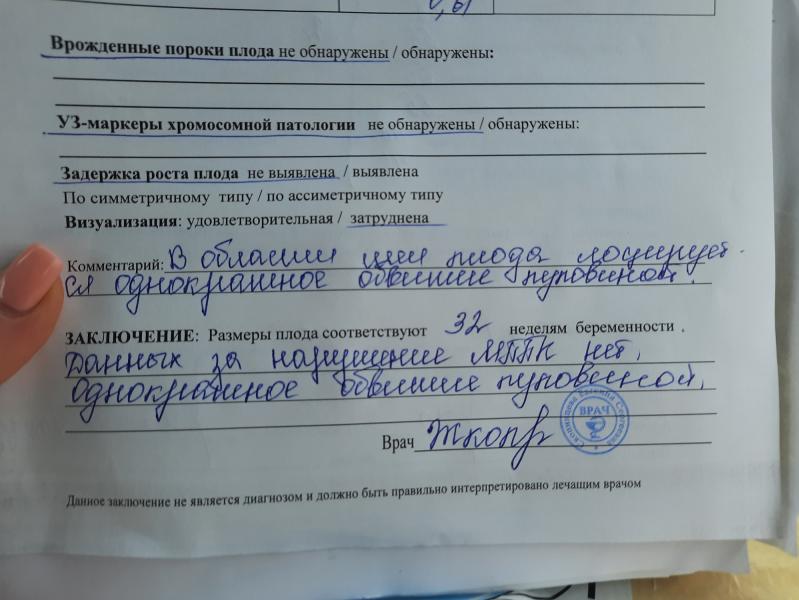 Врожденные пороки плода не обнаружены / обнаружены:
УЗ-маркеры хромосомной патологии не обнаружены / обнаружены:
Задержка роста плода не выявлена / выявлена
По симметричному типу / по ассиметричному типу
Визуализация: удовлетворительная / затруднена
Комментарий: В области шеи плода лоцирует-
ся однократное обвитие пуповиной.
ЗАКЛЮЧЕНИЕ: Размеры плода соответствуют 32 неделям беременности .
Данных за нарушение МППК нет,
однократное обвитие пуповиной.
ВРАЧ
Врач
Данное заключение не является диагнозом и должно быть правильно интерпретировано лечащим врачом